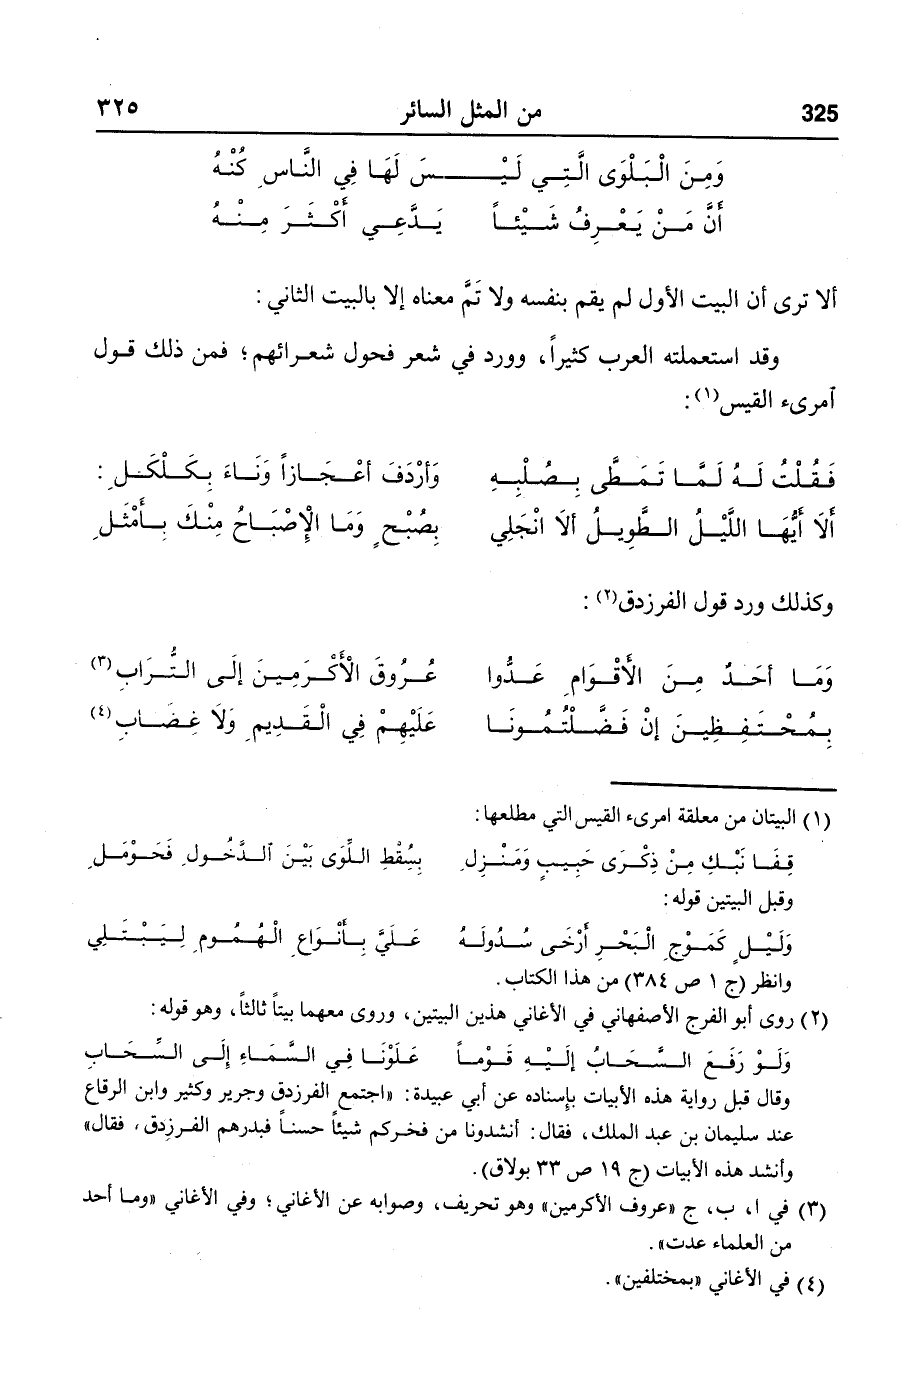 325 من المثل السائر ٣٢٥
وَمِنَ الْبَلْوَى الَّتِي لَيْـــــسَ لَهَا فِي النَّاسِ كُنْهُ
أَنَّ مَنْ يَعْرِفُ شَيْئاً يَدَّعِي أَكْثَرَ مِنْهُ
ألا ترى أن البيت الأول لم يقم بنفسه ولا تَمَّ معناه إلا بالبيت الثاني :
وقد استعملته العرب كثيراً، وورد في شعر فحول شعرائهم؛ فمن ذلك قول
آمرىء القيس(١) :
فَقُلْتُ لَهُ لَمَّا تَمَطَّى بِصُلْبِهِ وَأَرْدَفَ أعْجَازاً وَنَاءَ بِكَلْكَلِ :
أَلاَ أَيُّهَا اللَّيْلُ الطَّوِيلُ أَلاَ انْجَلِي بِصُبْحٍ وَمَا الإِصْبَاحُ مِنْكَ بِأَمْثَلِ
وكذلك ورد قول الفرزدق(٢) :
وَمَا أحَدٌ مِنَ الأَقْوَامِ عَدُّوا عُرُوقَ الْأَكْرَمِينَ إلَى التُّرَابِ(٣)
بِمُحْتَفِظِينَ إنْ فَضَّلْتُمُونَا عَلَيْهِمْ فِي الْقَدِيمِ وَلاَ غِضَابِ(٤)
(١) البيتان من معلقة امرىء القيس التي مطلعها :
قِفَا نَبْكِ مِنْ ذِكْرَى حَبِيبٍ وَمَنْزِلِ بِسُقْطِ اللِّوَى بَيْنَ آلدَّخُولِ فَحَوْمَلِ
وقبل البيتين قوله :
وَلَيْلٍ كَمَوْجِ الْبَحْرِ أَرْخَى سُدُولَهُ عَلَيَّ بِأَنْوَاعِ الْهُمُومِ لِيَبْتَلِي
وانظر (ج ١ ص ٣٨٤) من هذا الكتاب .
(٢) روى أبو الفرج الأصفهاني في الأغاني هذين البيتين، وروى معهما بيتاً ثالثاً، وهو قوله :
وَلَوْ رَفَعَ السَّحَابُ إلَيْهِ قَوْماً عَلَوْنَا فِي السَّمَاءِ إلَى السَّحَابِ
وقال قبل رواية هذه الأبيات بإسناده عن أبي عبيدة : «اجتمع الفرزدق وجرير وكثير وابن الرقاع
عند سليمان بن عبد الملك، فقال : أنشدونا من فخركم شيئاً حسناً فبدرهم الفرزدق، فقال»
وأنشد هذه الأبيات (ج ١٩ ص ٣٣ بولاق).
(٣) في ا، ب، ج «عروف الأكرمين» وهو تحريف، وصوابه عن الأغاني؛ وفي الأغاني «وما أحد
من العلماء عدت» .
(٤) في الأغاني «بمختلفين» .